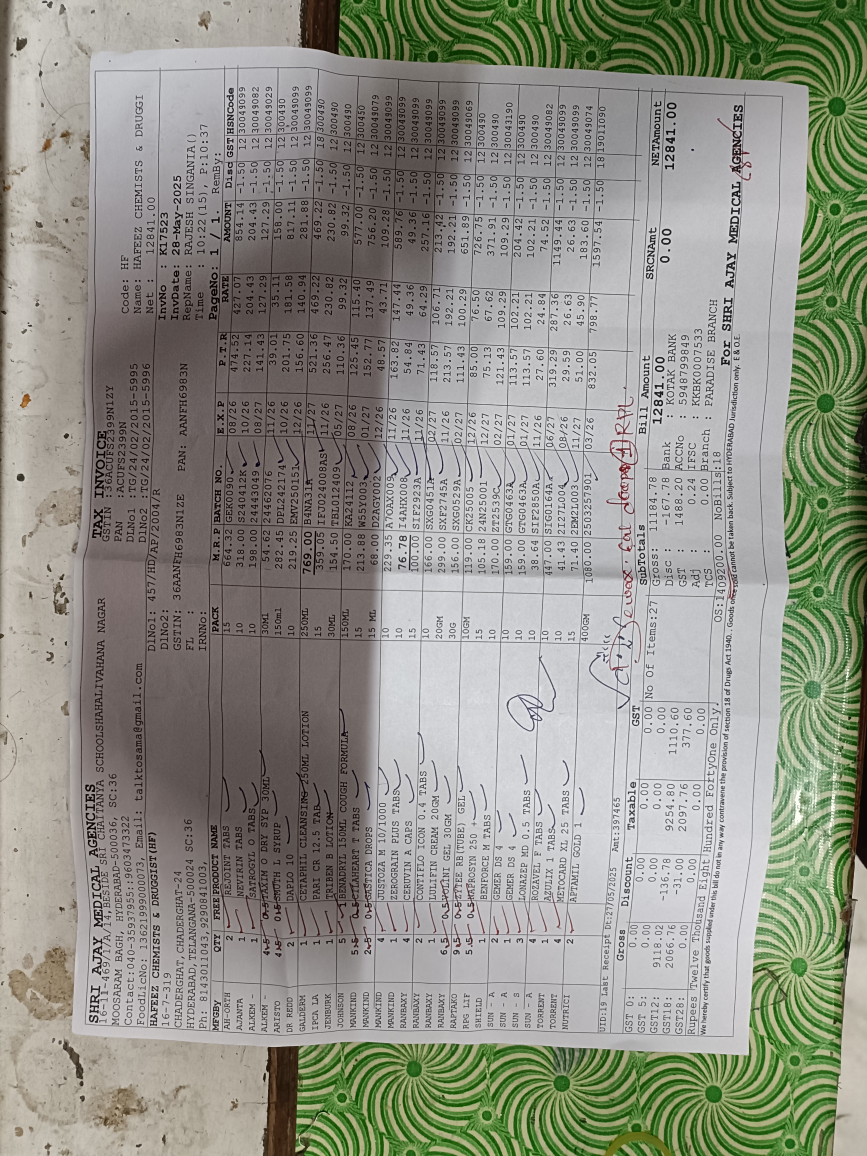 SHRI AJAY MEDICAL AGENCIES
16-11-469/1/A/14, BESIDE SRI CHAITANYA SCHOOLSHALIVAHANA NAGAR
MOOSARAM BAGH, HYDERABAD-500036, SC:36
Contact:040-35937955::9603473322
FoodLicNo: 13621999000073, Email: talktosama@gmail.com
TAX INVOICE
GSTIN :36ACUFS2399N1ZY
PAN :ACUFS2399N
DLNo1 :TG/24/02/2015-5995
DLNo2 :TG/24/02/2015-5996
Code: HF
Name: HAFEEZ CHEMISTS & DRUGGI
Net : 12841.00
HAFEEZ CHEMISTS & DRUGGIST(HF)
16-7-319
CHADERGHAT, CHADERGHAT-24
HYDERABAD, TELANGANA-500024 SC:36
Ph: 8143011043, 9290841003,
DlNo1: 457/HD/AP/2004/R
DlNo2:
GSTIN: 36AANFH6983N1ZE PAN: AANFH6983N
FL :
IRNNo:
InvNo : K17523
InvDate: 28-May-2025
RepName: RAJESH SINGANIA()
Time : 10:22(15), P:10:37
PageNo: 1 / 1. RenBy:
MFGBy QTY FREE PRODUCT NAME PACK M.R.P BATCH NO. E.X.P P.T.R RATE AMOUNT Disc GST HSNCode
AH-ORTH 2 REJOINT TABS 15 664.32 GEK0090 08/26 474.52 427.07 854.14 -1.50 12 30049099
AJANTA 1 MEVTIRIN TABS 10 318.00 S240412K 10/26 227.14 204.43 204.43 -1.50 12 30049082
ALKEM - 1 10 198.00 24443049 08/27 141.43 127.29 127.29 -1.50 12 30049029
ALKEM - TAXIM O DRY SYP 30ML 30Ml 54.62 24462076 11/26 39.01 35.11 158.00 -1.50 12 300490
ARISTO SMUTH L SYRUP 150ml 282.45 DPL242174 10/26 201.75 181.58 817.11 -1.50 12 30049099
DR REDD 2 DAPLO 10 10 219.25 EMV250151 12/26 156.60 140.94 281.88 -1.50 12 30049099
GALDERM 1 CETAPHIL CLEANSING 250ML LOTION 250ML 769.00 B4NA31A 11/27 521.36 469.22 469.22 -1.50 18 300490
IPCA LA 1 PARI CR 12.5 TAB 15 359.05 IFJ024008AS 11/26 256.47 230.82 230.82 -1.50 12 300490
JENBURK 1 TRIBEN B LOTION 30ML 154.50 TBL012409 05/27 110.36 99.32 99.32 -1.50 12 300490
JOHNSON 5 BENADRYL 150ML COUGH FORMULA 150ML 170.00 KA24112 08/26 125.45 115.40 577.00 -1.50 12 300450
MANKIND CILAHEART T TABS 15 213.88 W55Y003 01/27 152.77 137.49 756.20 -1.50 12 30049079
MANKIND GASTICA DROPS 15 ML 68.00 D2AGY002 12/26 48.57 43.71 109.28 -1.50 12 30049099
MANKIND 4 JUSTOZA M 10/1000 10 229.35 A7OAX009 11/26 163.82 147.44 589.76 -1.50 12 30049099
MANKIND 1 ZEROGRAIN PLUS TABS 10 76.78 I4AHX008 11/26 54.84 49.36 49.36 -1.50 12 30049099
RANBAKY 4 CERUVIN A CAPS 15 100.00 SIF2923A 11/26 71.43 64.29 257.16 -1.50 12 30049099
RANBAKY 2 CONTIFLO ICON 0.4 TABS 10 166.00 SXG0451A 02/27 118.57 106.71 213.42 -1.50 12 30049099
RANBAKY 1 LULIFIN CREAM 20GM 20GM 299.00 SXF2745A 11/26 213.57 192.21 192.21 -1.50 12 30049099
RANBAKY VOLINI GEL 30GM 30G 156.00 SXG0529A 02/27 111.43 100.29 651.89 -1.50 12 30049069
RAPTAKO ZYTEE RB(TUBE) GEL 10GM 119.00 CK25005 12/26 85.00 76.50 726.75 -1.50 12 300490
RPG LIF NAPROSYN 250 + 15 105.18 24N25001 12/27 75.13 67.62 371.91 -1.50 12 300490
SHIELD 1 BENFORCE M TABS 10 170.00 2T2539C 02/27 121.43 109.29 109.29 -1.50 12 30043190
SUN - A 2 GEMER DS 4 10 159.00 GTG0463A 01/27 113.57 102.21 204.42 -1.50 12 300490
SUN - A 1 GEMER DS 4 10 159.00 GTG0463A 01/27 113.57 102.21 102.21 -1.50 12 300490
SUN - S 3 LONAZEP MD 0.5 TABS 15 38.64 SIF2850A 11/26 27.60 24.84 74.52 -1.50 12 30049082
SUN - A 4 ROZAVEL F TABS 10 447.00 SIG0164A 06/27 319.29 287.36 1149.44 -1.50 12 30049099
TORRENT 1 AZULIX 1 TABS 10 41.43 2I27L004 08/26 29.59 26.63 26.63 -1.50 12 30049099
TORRENT 4 METOCARD XL 25 TABS 15 71.40 2DM2L003 11/27 51.00 45.90 183.60 -1.50 12 30049074
NUTRICI 2 APTAMIL GOLD 1 400GM 1080.00 2503257901 03/26 832.05 798.77 1597.54 -1.50 18 19011090
UID:19 Last Receipt Dt:27/05/2025 Amt:397465
Gross Discount Taxable GST
GST 0: 0.00 0.00 0.00 0.00
GST 5: 0.00 0.00 0.00 0.00
GST12: 9118.12 -136.78 9254.80 1110.60
GST18: 2066.76 -31.00 2097.76 377.60
GST28: 0.00 0.00 0.00 0.00
No Of Items:27
SubTotals
Gross: 11184.78
Disc : -167.78
GST : 1488.20
Adj : 0.24
TCS : 0.00
Bill Amount 12841.00
Bank : KOTAK BANK
ACCNo : 5948799849
IFSC : KKBK0007533
Branch : PARADISE BRANCH
SRCNAmt 0.00
NETAmount 12841.00
Rupees Twelve Thousand Eight Hundred FortyOne Only.
OS:1409200.00 NoBills:18
We hereby certify that goods supplied under this bill do not in any way contravene the provision of section 18 of Drugs Act 1940. Goods once sold cannot be taken back. Subject to HYDERABAD Jurisdiction only. E & O.E.
For SHRI AJAY MEDICAL AGENCIES